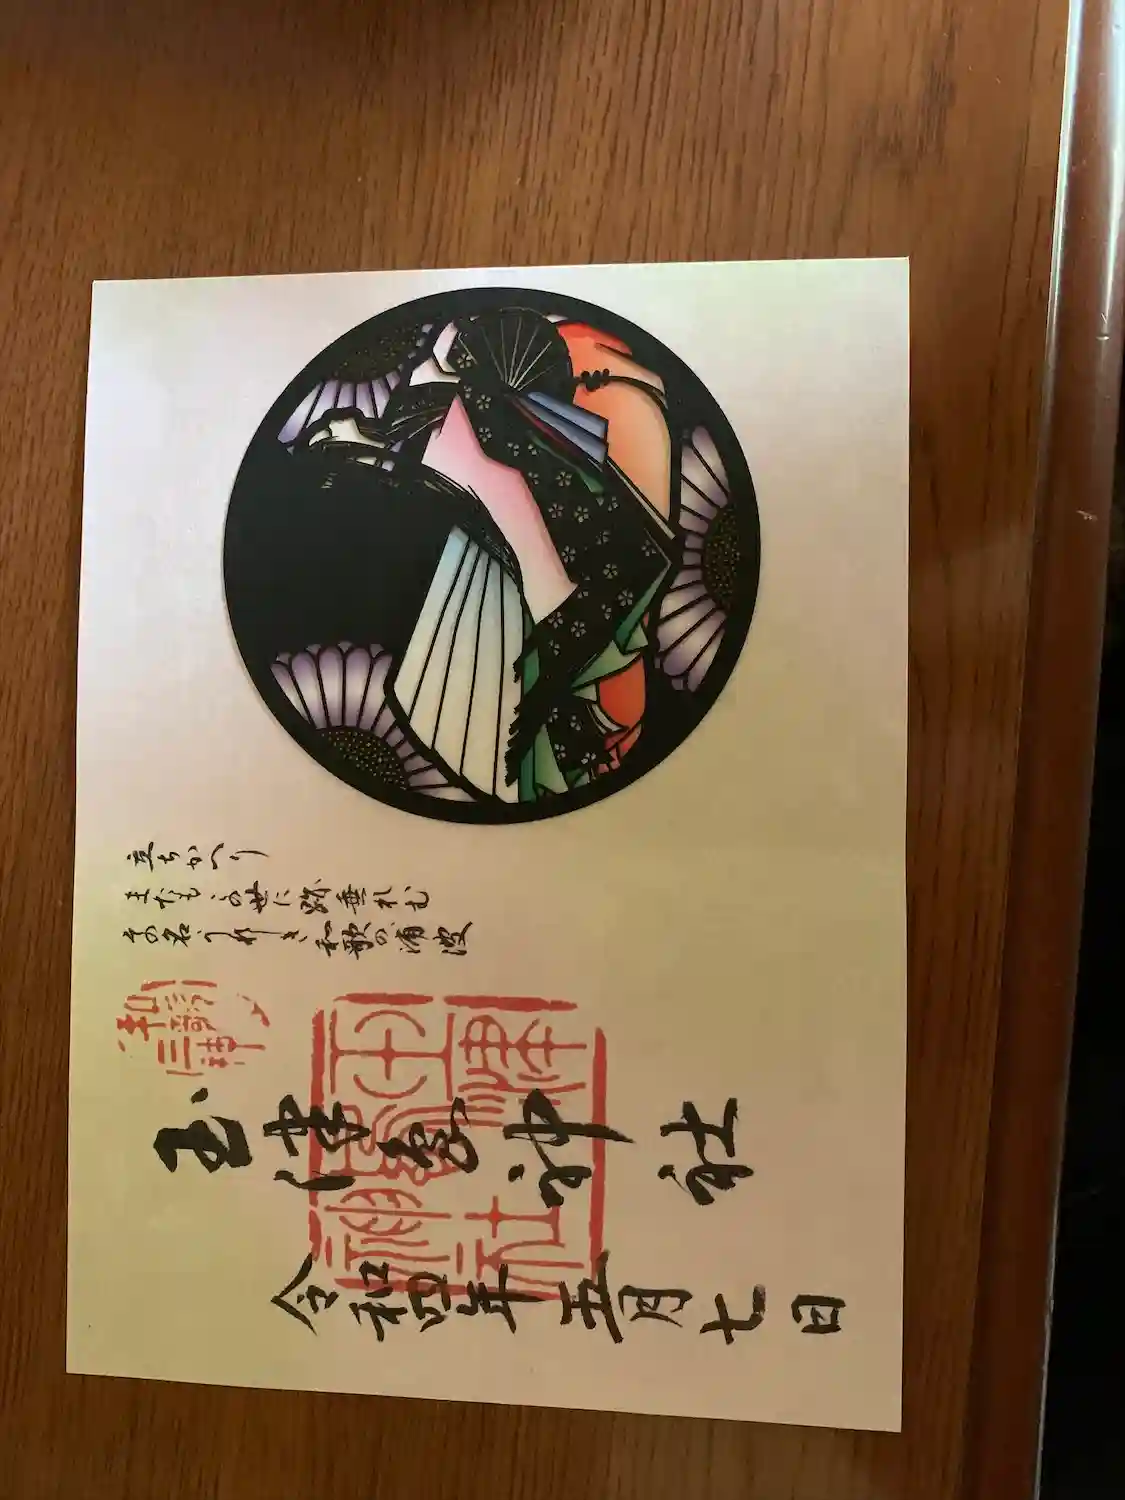 立ちかへり
またもこの世に跡垂れむ
その名うれしき和歌の浦波
和歌三神
玉津島神社
玉津嶋神社
令和四年五月七日